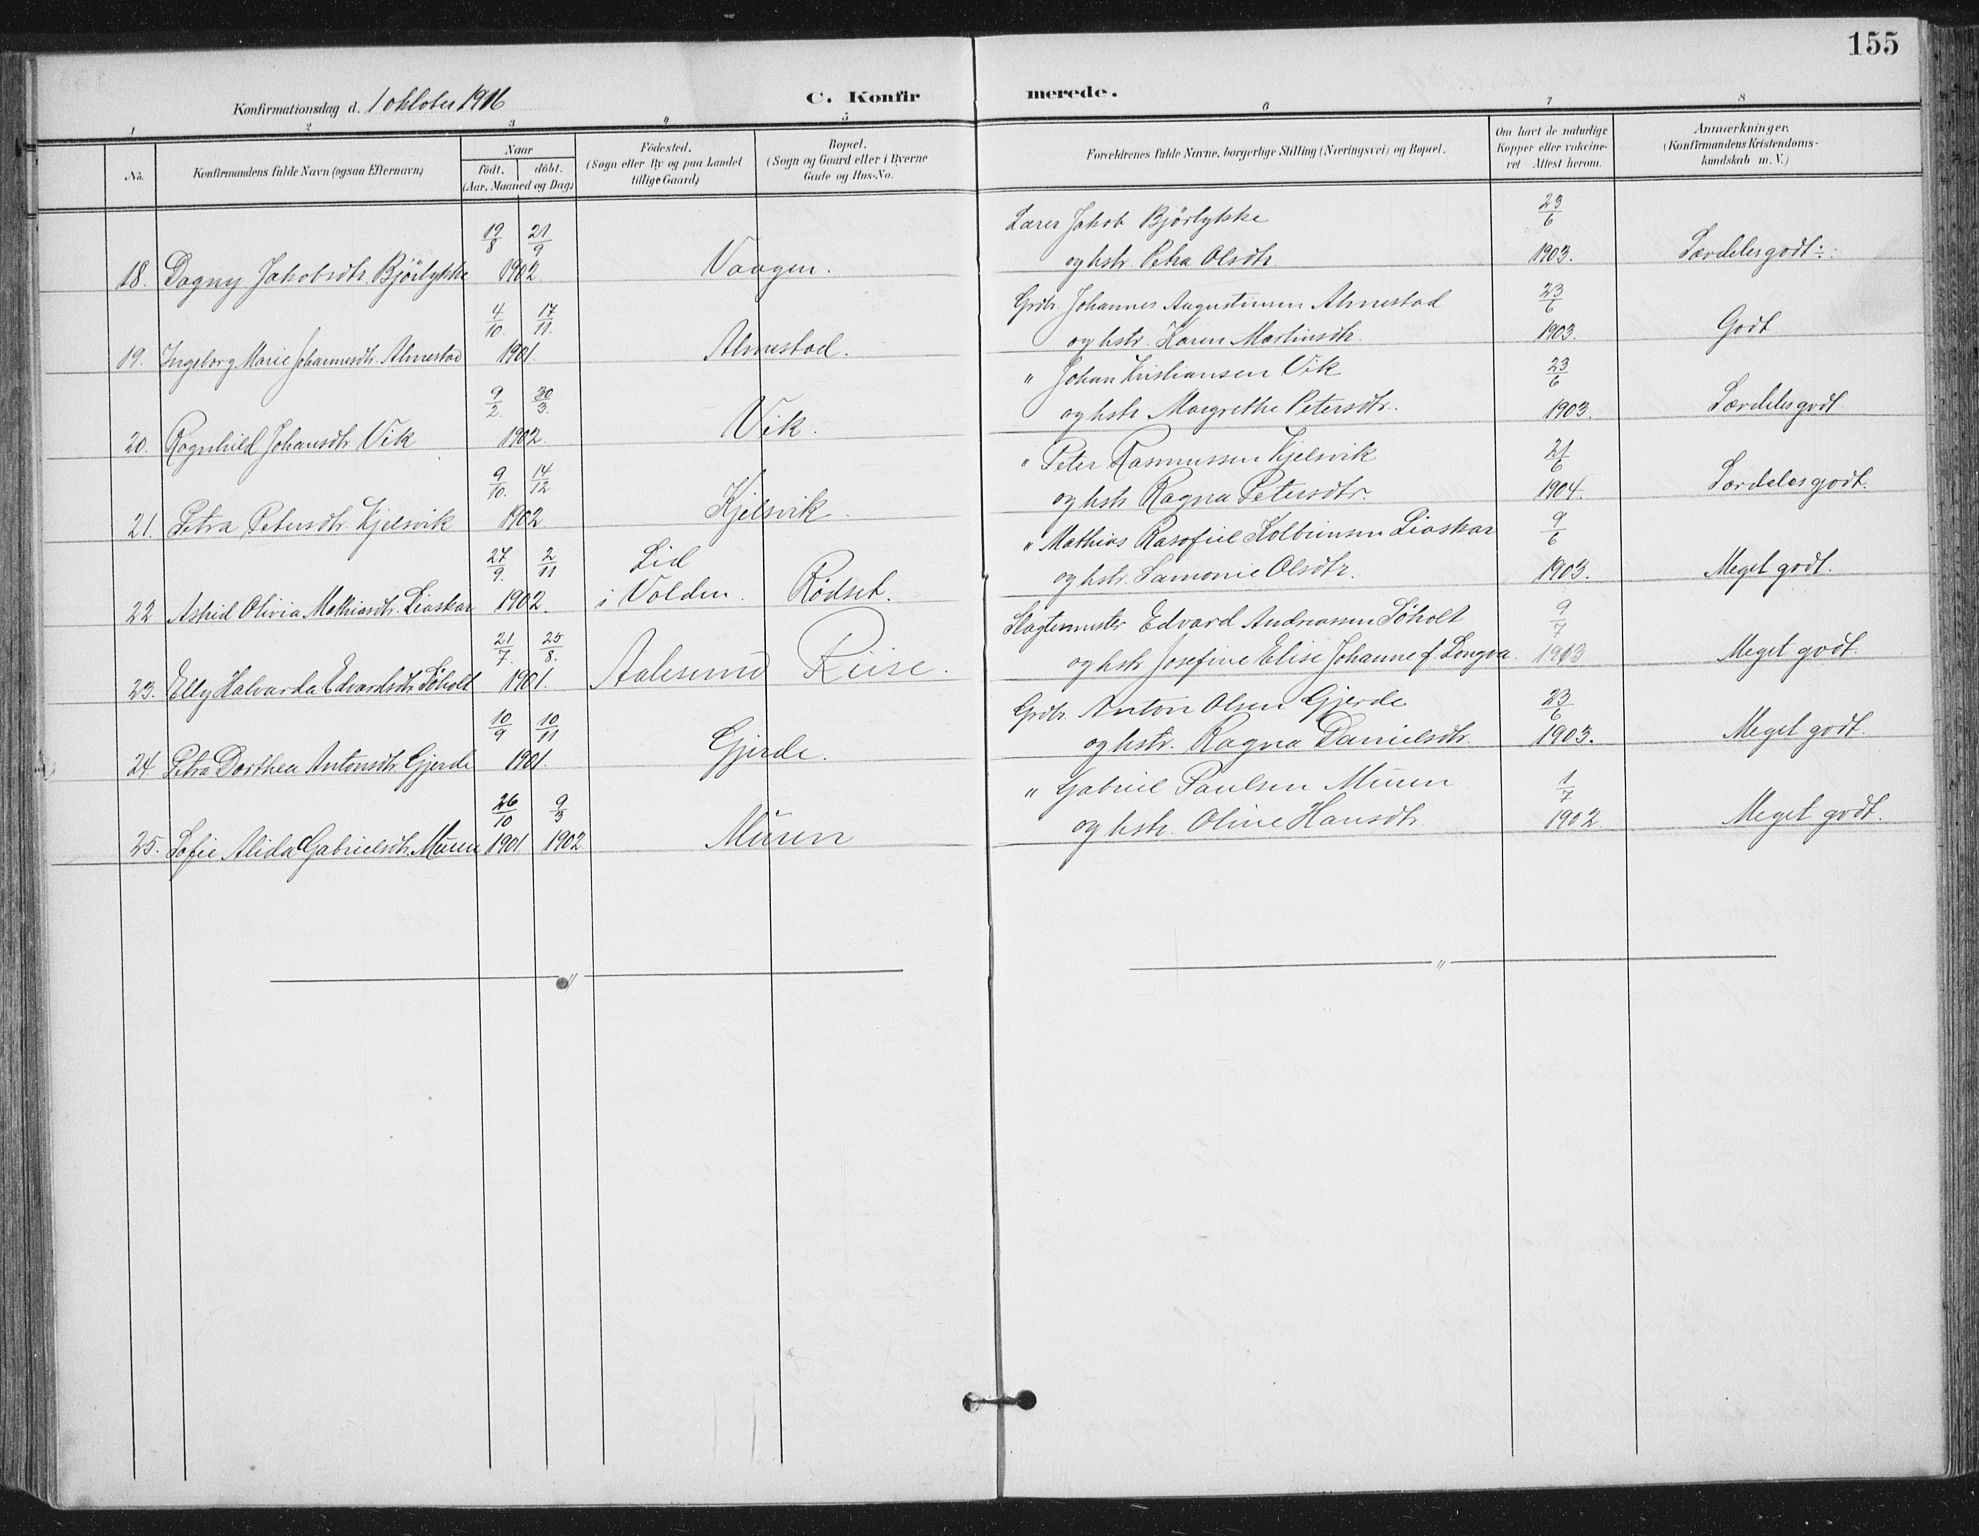 155
Konfirmationsdag d. 1 oktober 1916
C. Konfirmerede.
1 2 3 4 5 6 7 8
No. Konfirmandens fulde Navn (ogsaa Efternavn) Naar födt. döbt. (Aar, Maaned og Dag) Födested. (Sogn eller By og paa Landet tillige Gaard) Bopæl. (Sogn og Gaard eller i Byerne Gade og Hus-No. Forældrenes fulde Navne, borgerlige Stilling (Næringsvei) og Bopæl. Om havt de naturlige Kopper eller vakcineret Attest herom. Anmærkninger. (Konfirmandens Kristendomskundskab m. V.)
19/8 21/9 Lærer Jakob Bjørlykke 23/6
18. Dagny Jakobsdtr. Bjørlykke 1902 Vaagen. og hstr. Petra Olsdtr. 1903. Særdeles godt ÷.
4/10. 17/11. Grdbr. Johannes Augustinsen Almestad 23/6
19. Ingeborg Marie Johannesdtr. Almestad 1901. Almestad. og hstr. Karen Martinsdtr. 1903. Godt
9/2. 30/3. " Johan Kristiansen Vik 23/6
20. Ragnhild Johansdtr. Vik 1902. Vik. og hstr. Margrethe Petersdtr. 1903. Særdeles godt
9/10. 14/12. " Peter Rasmussen Kjelsvik 21/6
21. Petra Petersdtr. Kjelsvik 1902 Kjelsvik. og hstr. Ragna Petersdtr. 1904. Særdeles godt.
27/9. 2/11 Lid " Mathias Kolbeinsen Liaskar 9/6
22 Astrid Olivia Mathiasdtr. Liaskar 1902. i Volden. Rødset. og hstr. Samonie Olsdtr. 1903. Meget godt.
21/7. 25/8. Slagtermester Edvard Andreassen Søholt 9/7
23. Elly Halvarda Edvardsdtr. Søholt 1901. Aalesund Riise. og hstr. Josefine Elise Johanne f. Longva. 1913 Meget godt.
10/9 10/11 Grdbr. Anton Olsen Gjerde 23/6
24 Petra Dorthea Antonsdtr. Gjerde 1901. Gjerde. og hstr. Ragna Danielsdtr. 1903. Meget godt.
26/10 9/3 " Gabriel Paulsen Muren 1/7
25. Sofie Alida Gabrielsdtr. Muren 1901 1902 Muren og hstr. Oline Hansdtr 1902 Meget godt.
" "